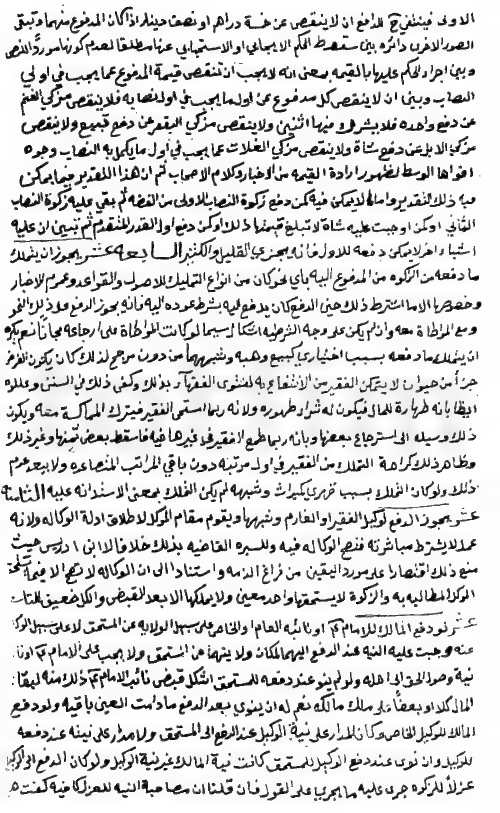 الاولى فينبغي ح للدافع ان لا ينقص عن خمسة دراهم او نصف دينار اذا كان المدفوع منهما وتبقى
الصور الاخرى دائره بين سقوط الحكم الايجابي او الاستحبابي عنها مطلقا لعدم كونها مورد النص
وبين اجراء الحكم عليها بالقيمه بمعنى انه لا يجب ان تنقص قيمة المدفوع عما يجب في اولى
النصاب وبين ان لا ينقص كل مدفوع عن اول ما يجب في اول نصابه فلا ينقص مزكي الغنم
عن دفع واحده فلا يشرك منها اثنين ولا ينقص مزكي البقر عن دفع تبيع ولا ينقص
مزكي الابل عن دفع شاة ولا ينقص مزكي الغلات عما يجب في اول ما يكمل به النصاب وجوه
اقواها الوسط لظهور ارادة القيمه من الاخبار وكلام الاصحاب ثم ان هذا التقدير فيما يمكن
فيه ذلك التقدير واما ما لا يمكن فيه كمن دفع زكوة النصاب الاولى من الفضه ثم بقي عليه زكوة النصاب
الثاني او كمن اوجبت عليه شاة لا تبلغ قيمتها ذلك او كمن دفع اول القدر المتقدم ثم تبين ان عليه
اشياء اخر لا يمكن دفعه للاول فانه يجزي القليل والكثير السابعه عشر يجوز ان يتملك
ما دفعه من الزكوه من المدفوع اليه باي نحو كان من انواع التمليك للاصول والقواعد وعموم الاخبار
وخصوصها الا ما اشترط ذلك حين الدفع كان يدفع اليه بشرط عوده اليه فانه يجوز الدفع على ذلك النحو
ومع المواطاة معه وان لم يكن على وجه الشرطيه اشكال سيما لو كانت المواطاة على ارجاعه مجانا نعم يكره
ان يتملك ما دفعه بسبب اختياري كبيع وهبه وشبههما من دون مرجح لذلك كان يكون الفرض
جزء من حيوان لا يتمكن الفقير من الانتفاع به لفتوى الفقهاء بذلك وكفى ذلك في السنن وعللوه
ايظا بانه طهارة للمال فيكون له شراء طهوره ولانه ربما استحى الفقير فيترك المماكسة معه ويكون
ذلك وسيله الى استرجاع بعضها وبانه ربما طمع الفقير في غيرها فيه فاسقط بعض ثمنها وغير ذلك
وظاهر ذلك كراهة التملك من الفقير في اول مرتبه دون باقي المراتب المتصاعده ولا يبعد عموم
ذلك ولو كان التملك بسبب قهري كميراث وشبهه لم يكن التملك بمعنى الاستدامه عليه الثامنة
عشر يجوز الدفع لوكيل الفقير او الغارم وشبهها ويقوم مقام الموكل لاطلاق ادلة الوكاله ولانه
عمل لا يشترط مباشرته فتصح الوكاله فيه وللسيره القاضيه بذلك خلافا لابن ادريس حيث
منع ذلك اقتصارا على مورد اليقين من فراغ الذمه واستنادا الى ان الوكاله لا تصح الا فيما يستحق
الوكل المطالبه به والزكوة لا يستحقها واحد معين ولا يملكها الا بعد القبض والكل ضعيف التاسعة
عشر لو دفع المالك للامام ع او نائبه العام او الخاص على سبيل الولايه عن المستحق لا على سبيل الوكالة
عنه وجبت عليه النية عند الدفع اليهما لمكان ولايتهما عن المستحق ولا يجب على الامام ع او نائبه
نية وصول الحق الى اهله ولو لم ينو عند دفعه للمستحق اشكل قبض نائب الامام ع ذلك منه لبقاء
المال كلا او بعضا على ملك مالكه نعم له ان ينوي بعد الدفع ما دامت العين باقيه ولو دفع
المالك للوكيل الخاص وكان المدار على نية الوكيل عند الدفع الى المستحق ولا مدار على نيته عند دفعه
للوكيل وان نوى عند دفع الوكيل للمستحق كانت نية المالك غير نية الوكيل ولو كان الدفع الى الوكيل
عزلا للزكوه جرى عليه ما يجري على القول فان قلنا ان مصاحبة النيه للعزل كافيه كفت هنا